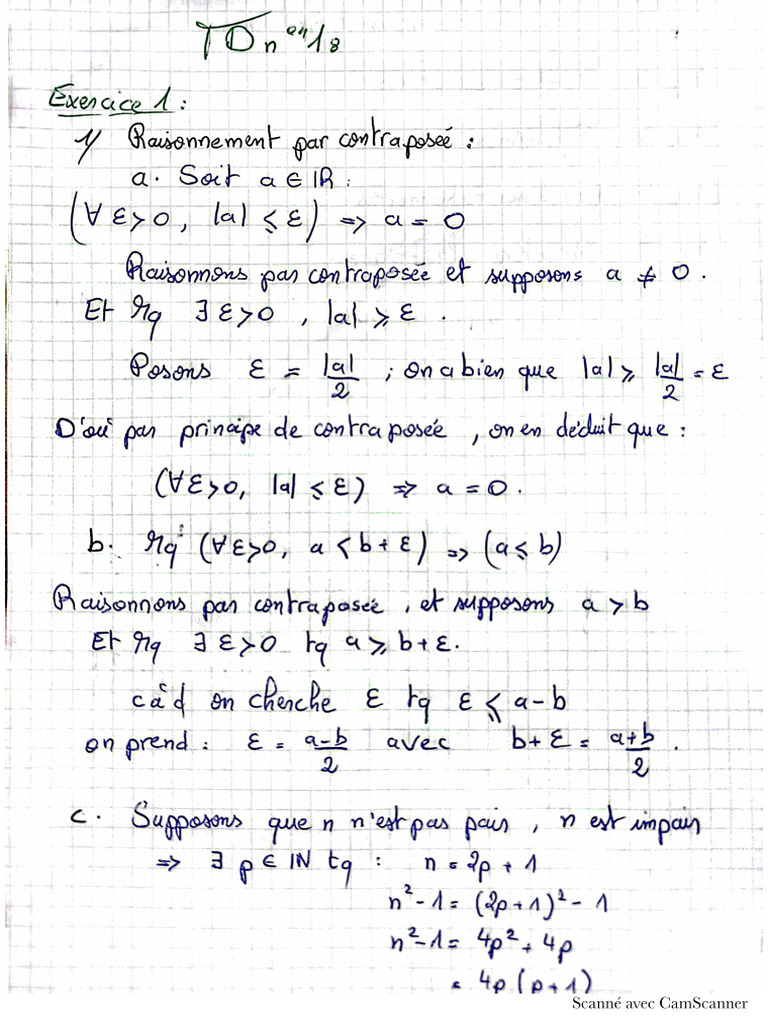 TD n°1 :
Exercice 1 :
1) Raisonnement par contraposée :
a. Soit a ∈ IR :
(∀ ε > 0, |a| ≤ ε) ⇒ a = 0
Raisonnons par contraposée et supposons a ≠ 0.
Et Mq ∃ ε > 0, |a| ≥ ε.
Posons ε = |a|/2 ; on a bien que |a| ≥ |a|/2 = ε
D'où par principe de contraposée, on en déduit que :
(∀ε>0, |a| ≤ ε) ⇒ a = 0.
b. Mq (∀ε>0, a < b + ε) ⇒ (a ≤ b)
Raisonnons par contraposée, et supposons a > b
Et Mq ∃ ε > 0 tq a ≥ b + ε.
càd on cherche ε tq ε ≤ a - b
on prend : ε = (a-b)/2 avec b + ε = (a+b)/2.
c. Supposons que n n'est pas pair, n est impair
⇒ ∃ p ∈ IN tq : n = 2p + 1
n² - 1 = (2p + 1)² - 1
n² - 1 = 4p² + 4p
= 4p (p + 1)
Scanné avec CamScanner